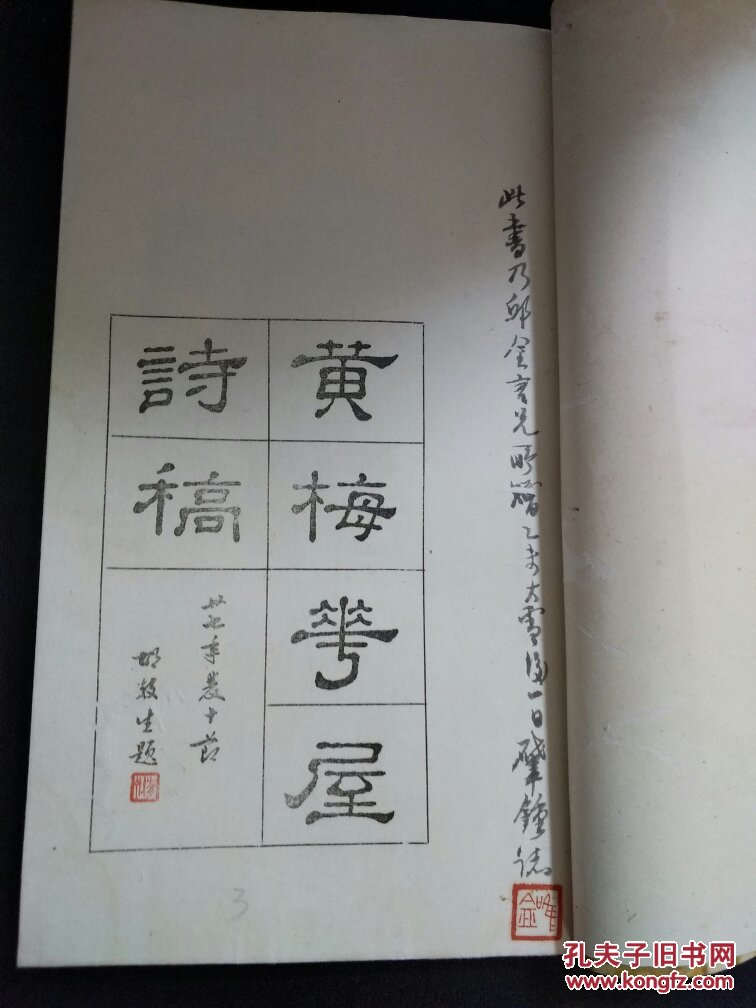 此書乃邱金兄所贈乙未大雪後一日肇鍾誌
黄梅華屋
詩稿
廿七年雙十節
胡毅生題
3
孔夫子旧书网
www.kongfz.com